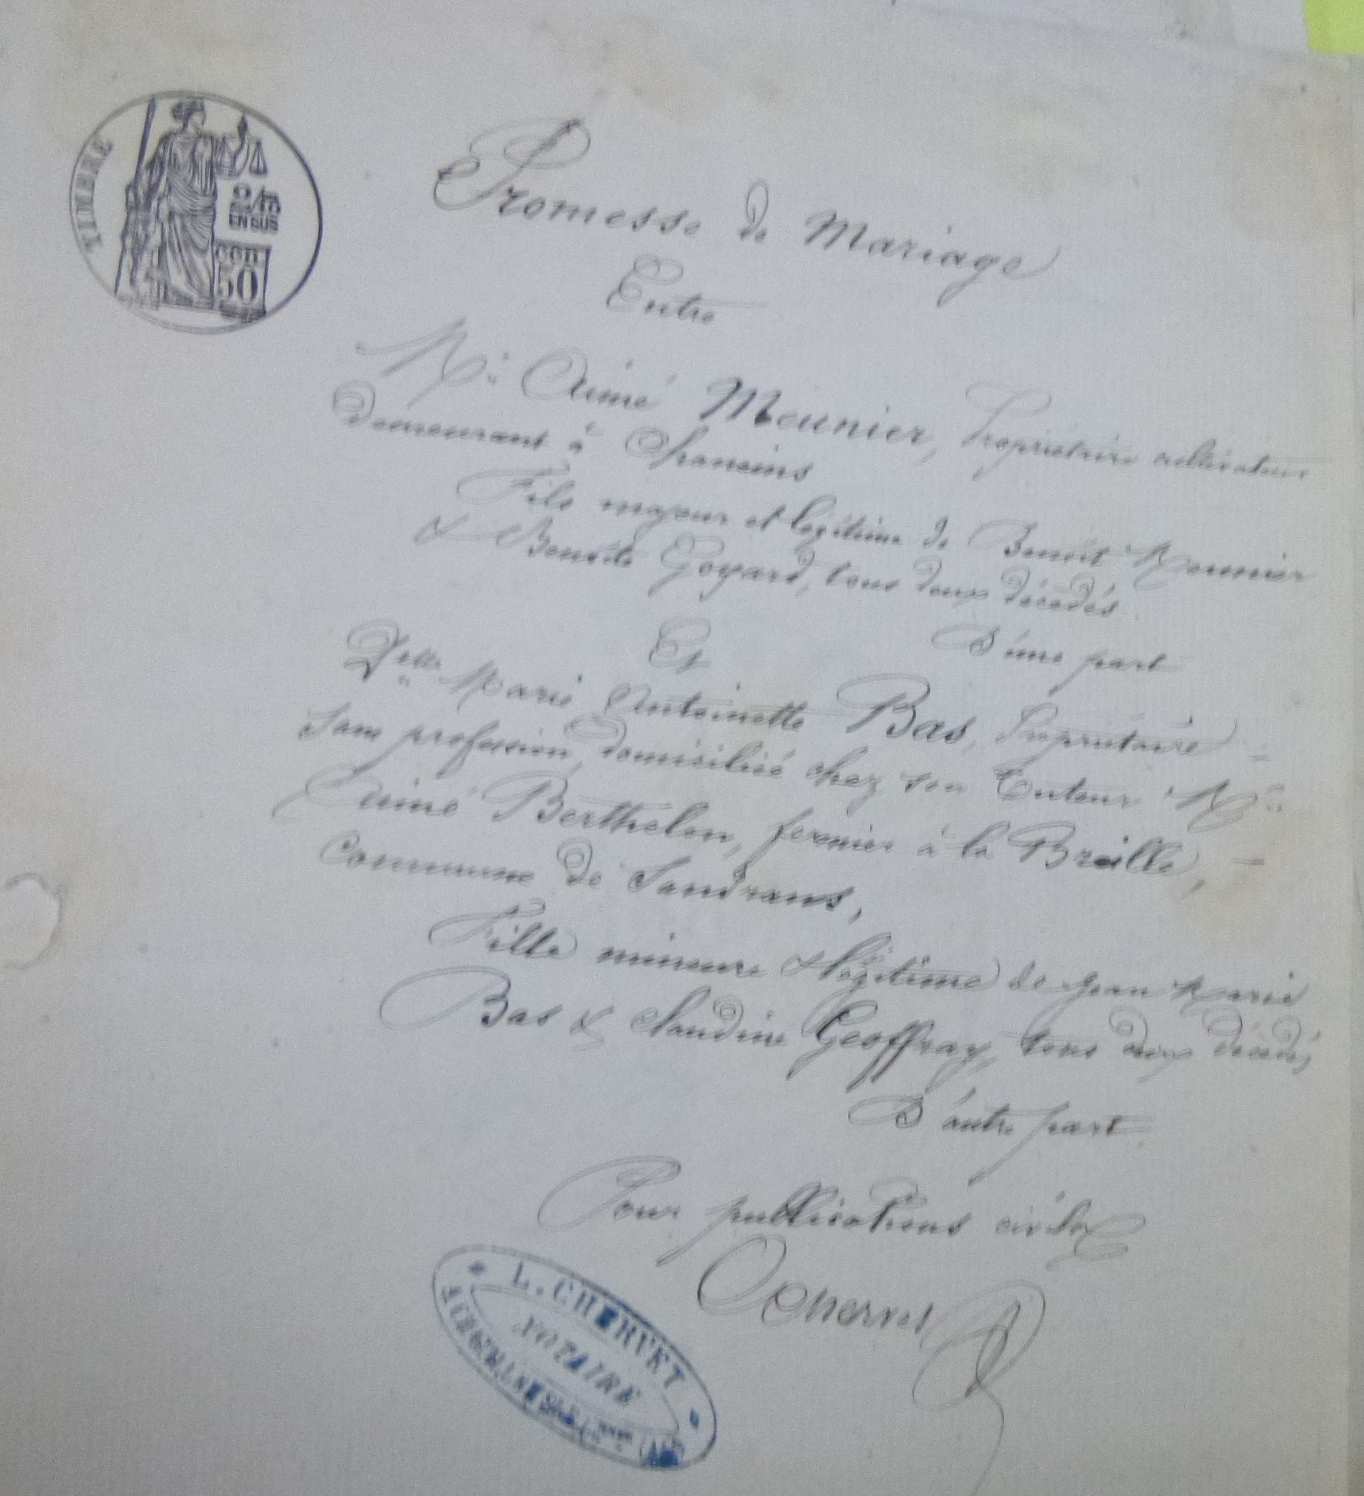 TIMBRE
2/10
EN SUS
50
Promesse de Mariage
Entre
Mr Aimé Meunier, Propriétaire cultivateur
demeurant à Chaneins
Fils majeur et légitime de Benoit Meunier
& Benoîte Goyard, tous deux décédés.
D'une part
Et
Delle Marie Antoinette Bas, Propriétaire
sans profession, domiciliée chez son Tuteur Mr
Aimé Berthelon, fermier à la Breille,
Commune de Sandrans,
Fille mineure & légitime de Jean Marie
Bas & Claudine Geoffray, tous deux décédés,
D'autre part.
Pour publications civiles
Chervet
L. CHERVET
NOTAIRE